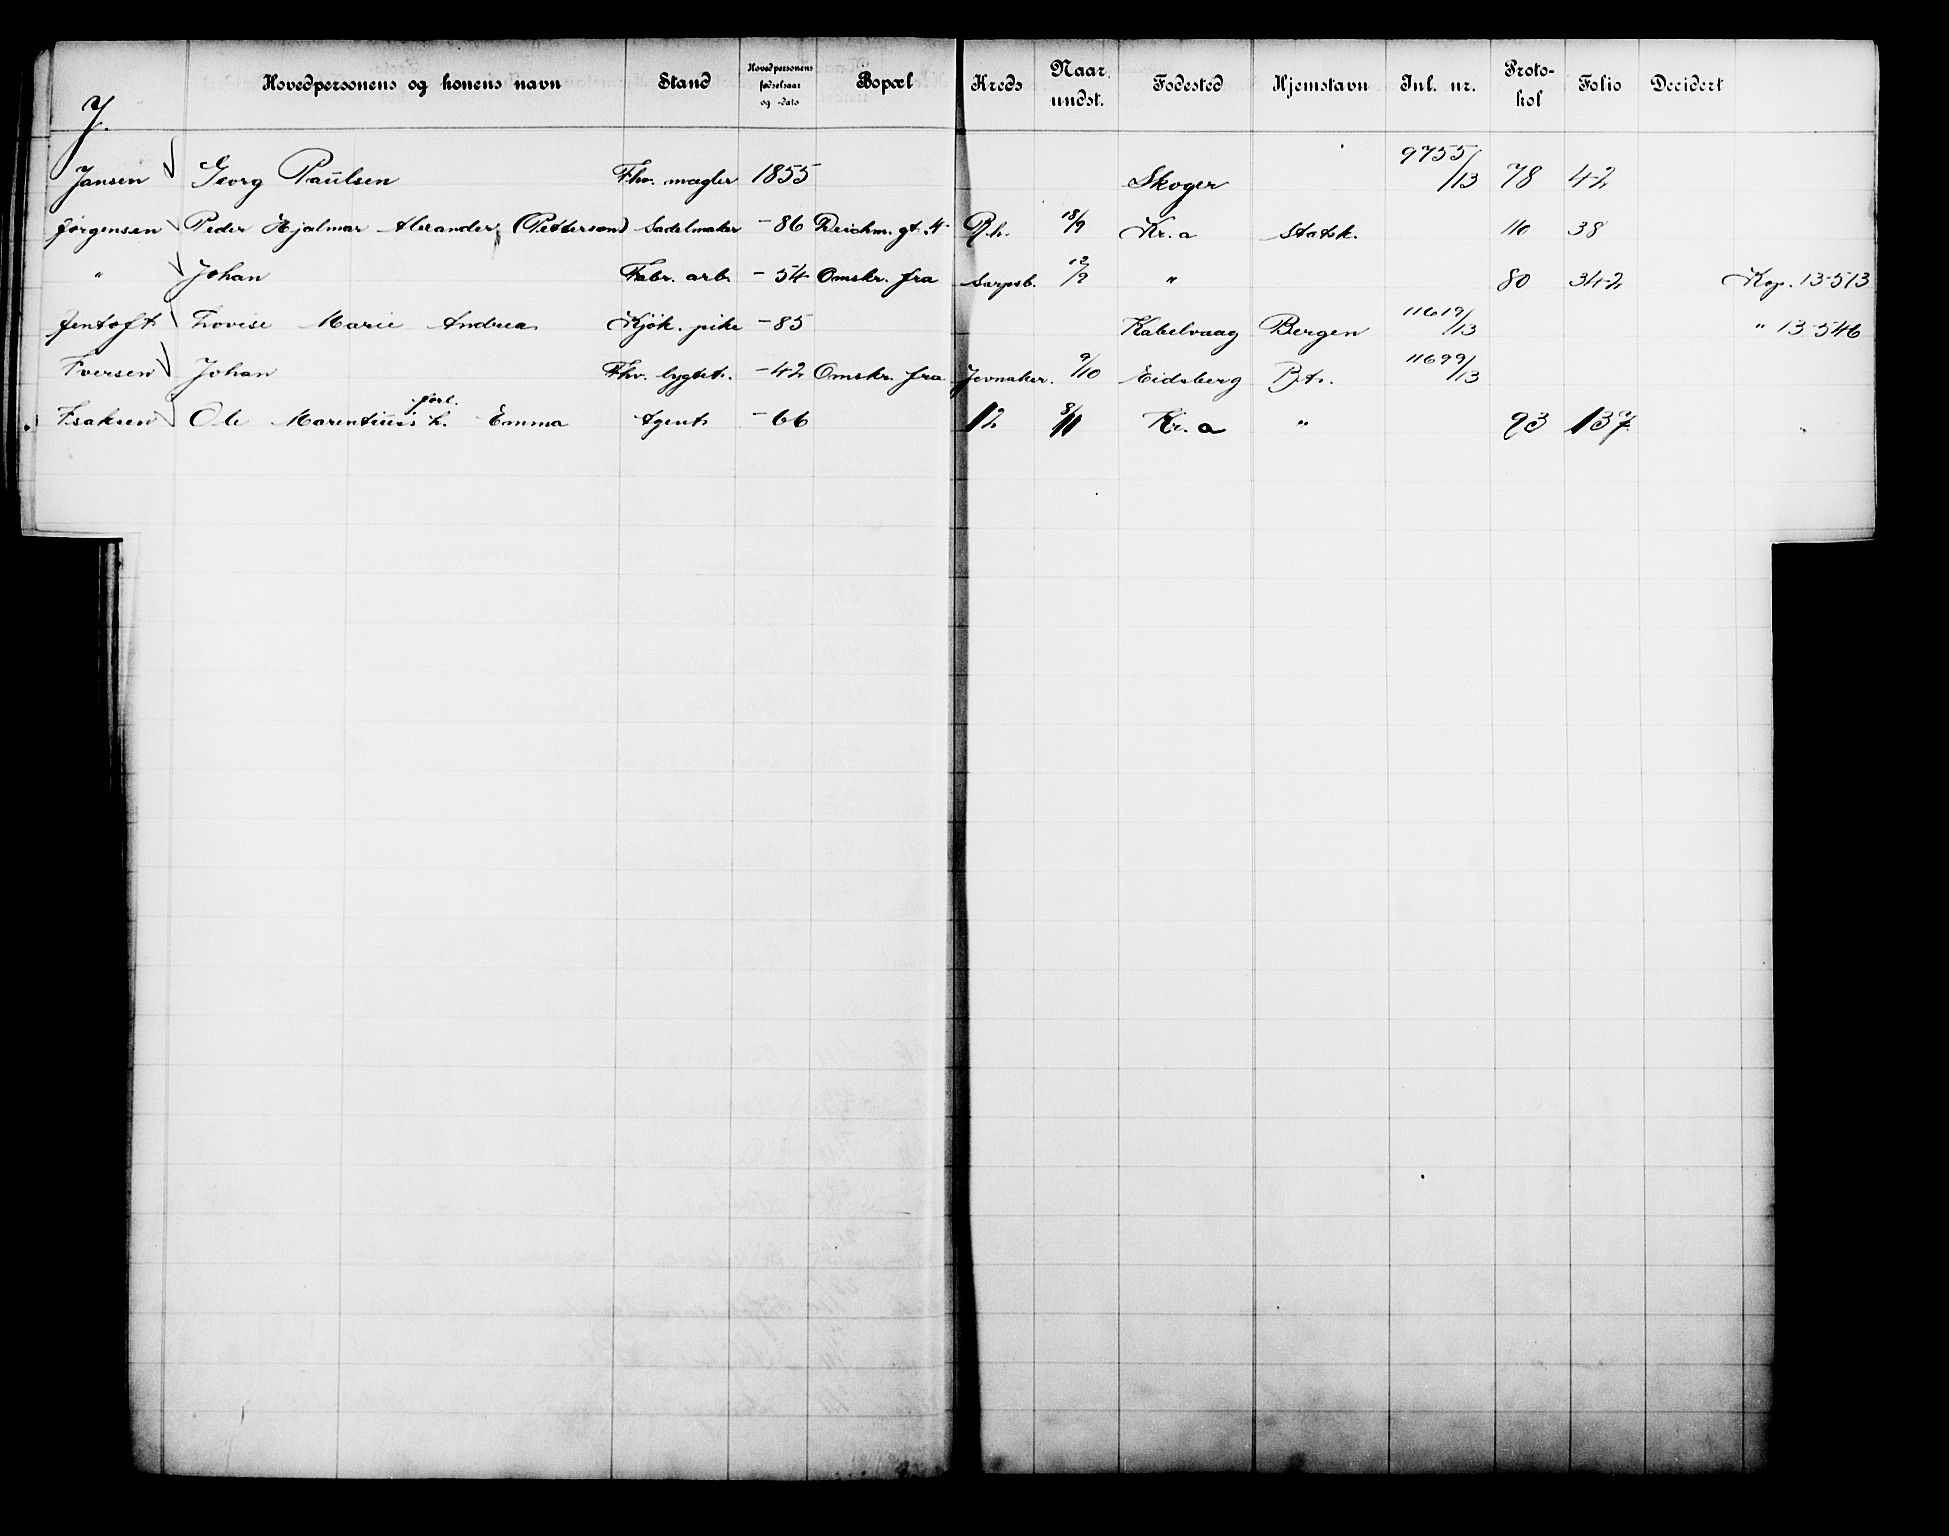 J.
Hovedpersonens og konens navn Stand Hovedpersonens fødselsaar og -dato Bopæl Kreds Naar undst. Fødested Hjemstavn Inl. nr. Protokol Folio Decidert
Jansen Georg Paulsen Fhv. mægler 1855 Skoger 9755/13 78 42
Jørgensen Peder Hjalmar Alexander (Pettersen) Sadelmaker -86 Deichm. gt. 4 Rh. 18/9 Kr.a Statsk. 110 38
" Johan Fabr. arb. -54 Omskr. fra Sarpsb. 12/9 " 80 342 Kop. 13-513
Jentoft Lovise Marie Andrea Kjøk. pike -85 Kabelvaag Bergen 11619/13 " 13-546
Iversen Johan Fhv. lygtet. -42 Omskr. fra Jevnaker. 9/10 Eidsberg 11699/13
Isaksen Ole Marentius forl. h. Emma Agent -66 12 8/11 Kr.a " 93 137